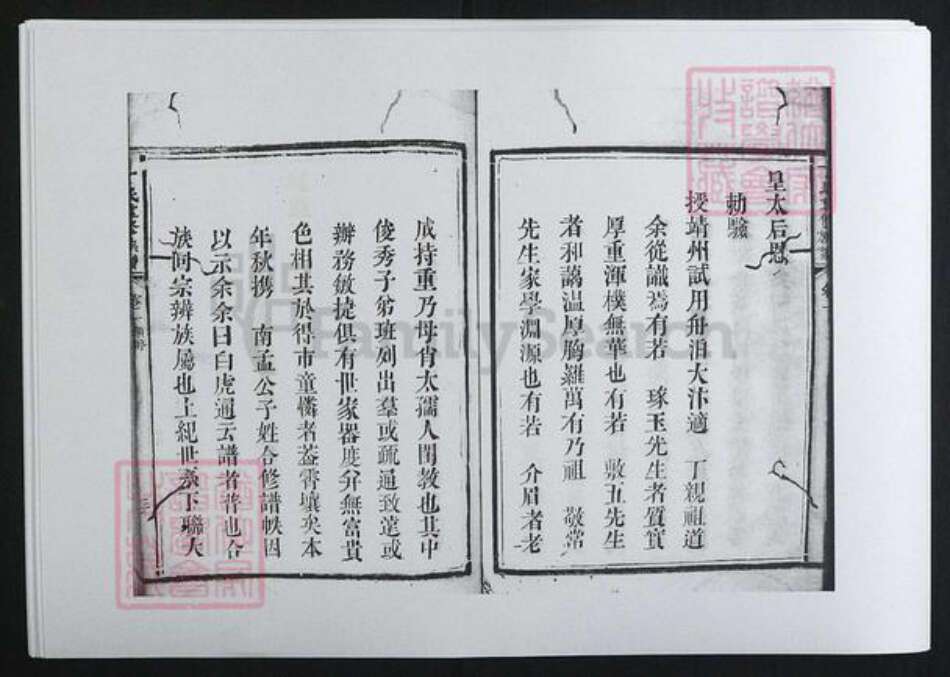 皇太后恩
勅驗
授靖州試用舟泊大汴適 丁親祖道
余從議為有若 琢玉先生者質實
厚重渾樸無華也有若 敷五先生
者和藹温厚胸羅萬有乃祖 敬常
先生家學淵源也有若 介眉者老
成持重乃母肖太孺人閫教也其中
俊秀子弟班列出羣或疏通致達或
辦務敏捷俱有世家器度并無富貴
色相其於得市童憐者葢霄壤矣本
年秋携 南孟公子姓合修譜帙因
以示余余曰白虎通云譜者普也合
族同宗辨族屬也上紀世系下聯大
FamilySearch